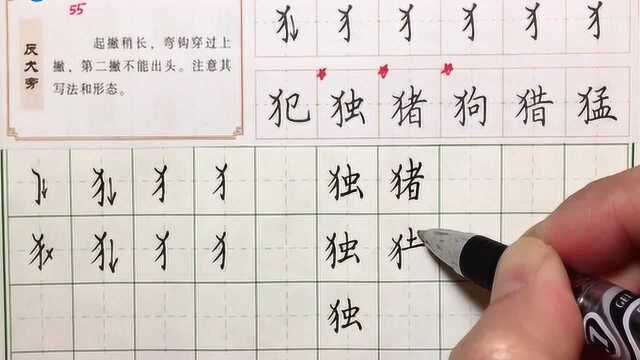 55
反犬旁
起撇稍长，弯钩穿过上
撇，第二撇不能出头。注意其
写法和形态。
犭 犭 犭 犭 犭 犭
犯 独 猪 狗 猎 猛
犭 犭 犭 独 猪
犭 犭 犭 犭 独
独